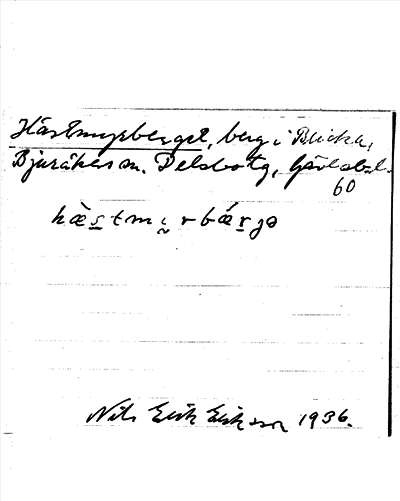 Hästmyrberget, berg i Blicka,
Bjuråkers sn. Delsbo tg, Gävlebl.
60
hæ̀s̲tmy̰rbǽr̲jə
Nils Erik Eriksson 1936.